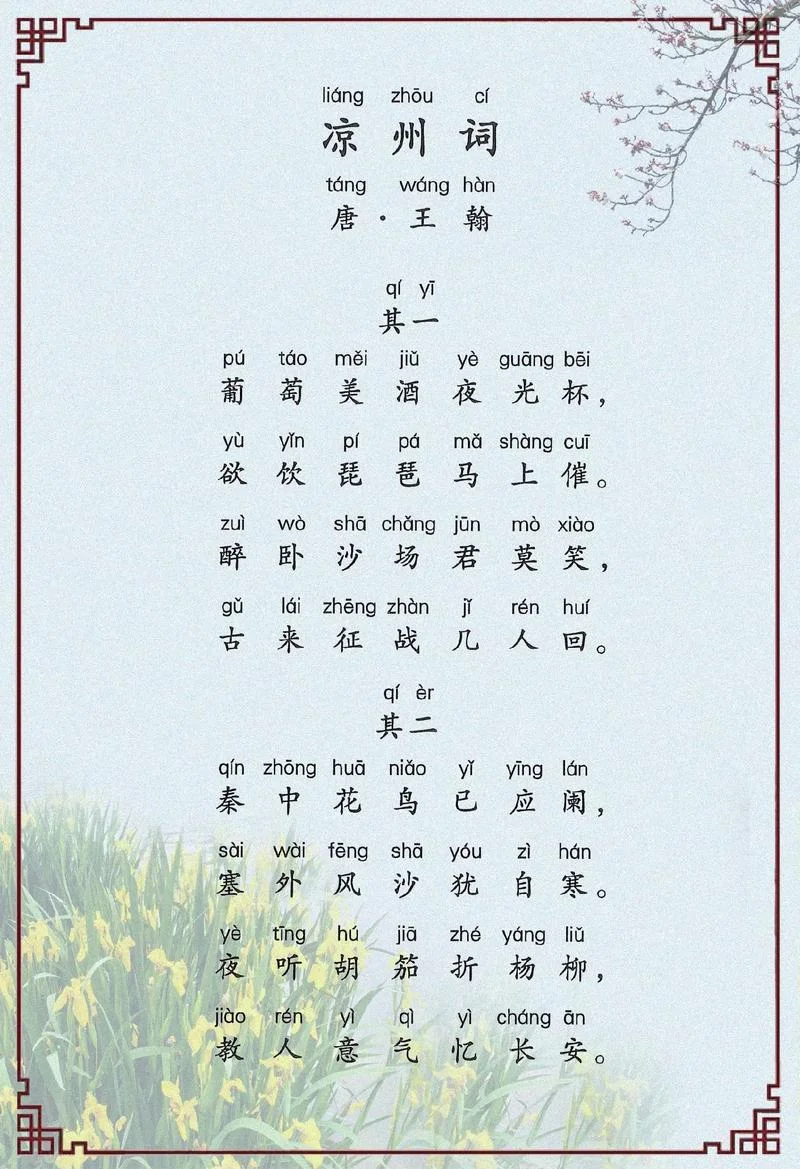 liáng zhōu cí
凉州词
táng wáng hàn
唐·王翰
qí yī
其一
pú táo měi jiǔ yè guāng bēi
葡萄美酒夜光杯，
yù yǐn pí pá mǎ shàng cuī
欲饮琵琶马上催。
zuì wò shā chǎng jūn mò xiào
醉卧沙场君莫笑，
gǔ lái zhēng zhàn jǐ rén huí
古来征战几人回。
qí èr
其二
qín zhōng huā niǎo yǐ yīng lán
秦中花鸟已应阑，
sài wài fēng shā yóu zì hán
塞外风沙犹自寒。
yè tīng hú jiā zhé yáng liǔ
夜听胡笳折杨柳，
jiào rén yì qì yì cháng ān
教人意气忆长安。